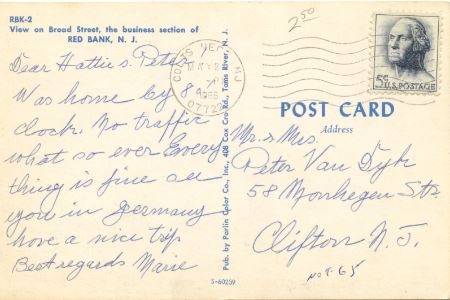 RBK-2
View on Broad Street, the business section of
RED BANK, N. J.
Dear Hattie & Peter,
Was home by 8
clock. No traffic
what so ever Every
thing is fine see
you in Germany
have a nice trip
Best regards Marie
Pub. by Parlin Color Co., Inc., 408 Cox Cro Rd., Toms River, N. J.
S-60259
2 50
COLTS NECK
N.J.
07722
5¢
U.S. POSTAGE
POST CARD
Address
Mr & Mrs.
Peter Van Dyk
58 Monhegen Str.
Clifton N. J.